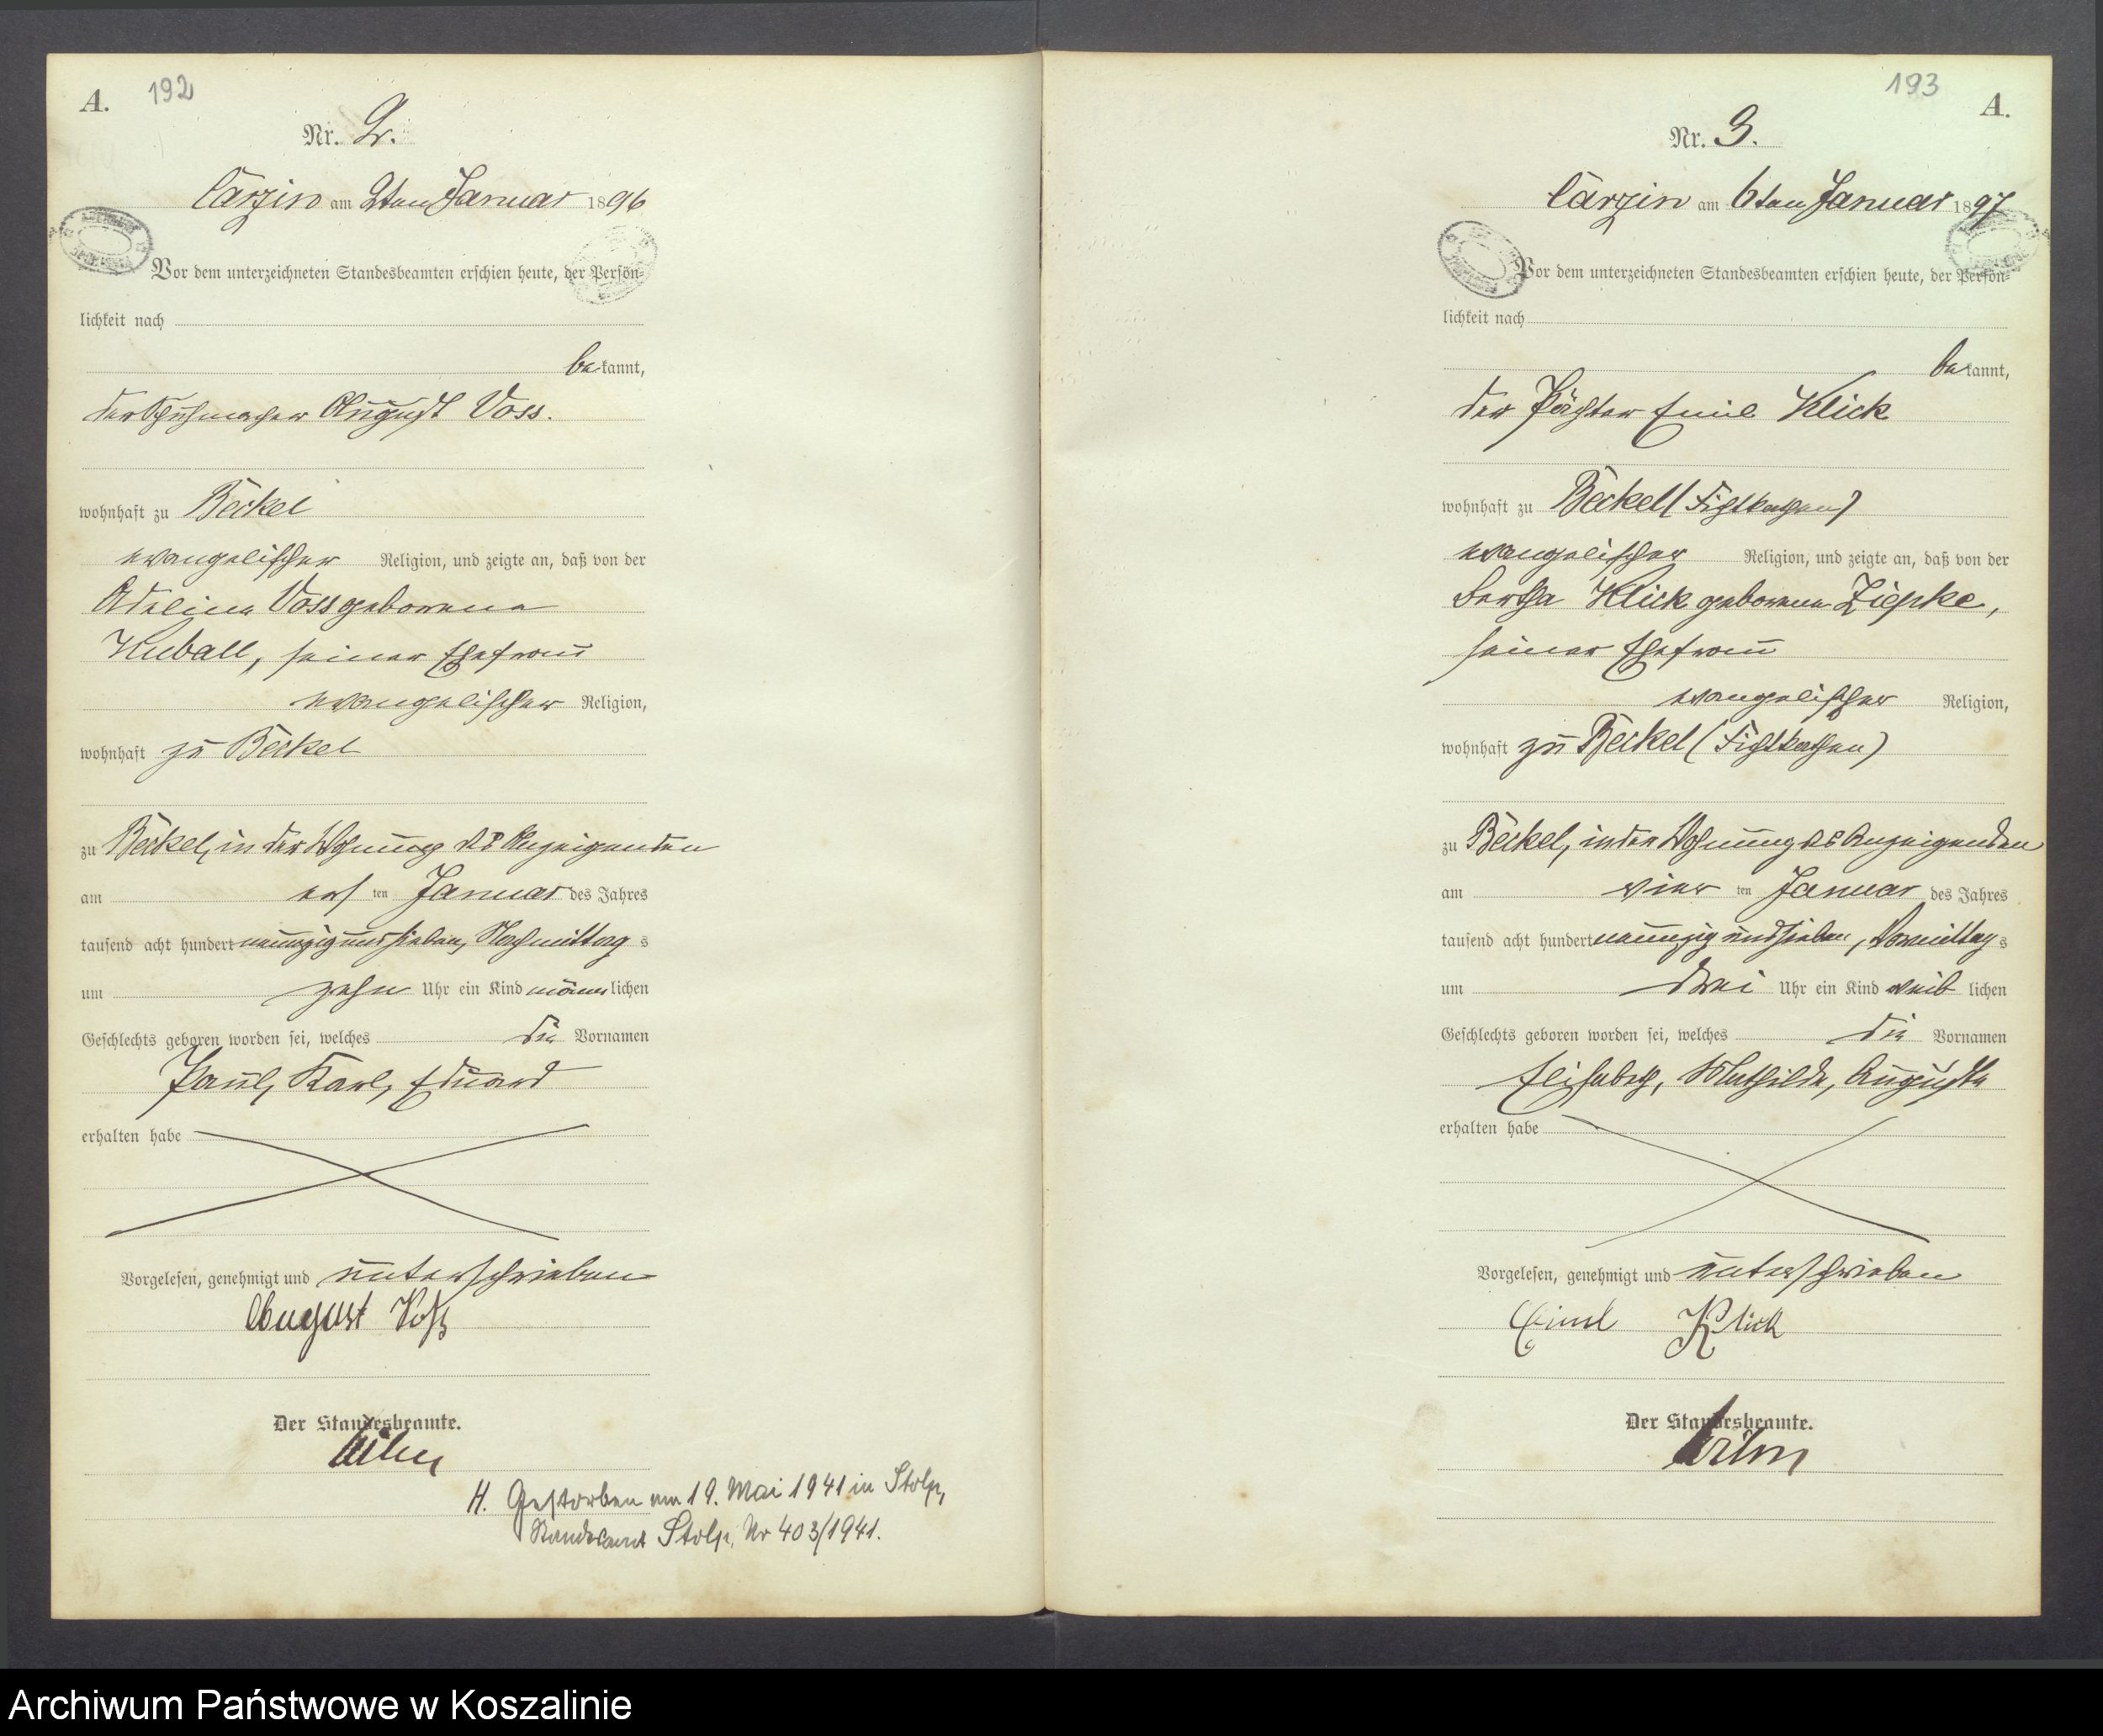 A. 192
Nr. 2.
Carzin am 2ten Januar 1896
Vor dem unterzeichneten Standesbeamten erschien heute, der Persön-
lichkeit nach
bekannt,
der Schuhmacher August Voss.
wohnhaft zu Beckel
evangelischer Religion, und zeigte an, daß von der
Adeline Voss geborene
Kuball, seiner Ehefrau
evangelischer Religion,
wohnhaft zu Beckel
zu Beckel, in der Wohnung des Anzeigenden
am ersten Januar des Jahres
tausend acht hundert neunzig und sieben, Nachmittags
um zehn Uhr ein Kind männlichen
Geschlechts geboren worden sei, welches die Vornamen
Paul, Karl, Eduard
erhalten habe
Vorgelesen, genehmigt und unterschrieben
August Voß
Der Standesbeamte.
H. Gestorben am 19. Mai 1941 in Stolp,
Standesamt Stolp, Nr 403/1941.
193 A.
Nr. 3.
Carzin am 6ten Januar 1897
Vor dem unterzeichneten Standesbeamten erschien heute, der Persön-
lichkeit nach
bekannt,
der Pächter Emil Klick
wohnhaft zu Beckel (Fichtkathen)
evangelischer Religion, und zeigte an, daß von der
Bertha Klick geborene Ziepke,
seiner Ehefrau
evangelischer Religion,
wohnhaft zu Beckel (Fichtkathen)
zu Beckel, in der Wohnung des Anzeigenden
am vierten Januar des Jahres
tausend acht hundert neunzig und sieben, Vormittags
um drei Uhr ein Kind weiblichen
Geschlechts geboren worden sei, welches die Vornamen
Elisabeth, Mathilde, Auguste
erhalten habe
Vorgelesen, genehmigt und unterschrieben
Emil Klick
Der Standesbeamte.
Archiwum Państwowe w Koszalinie